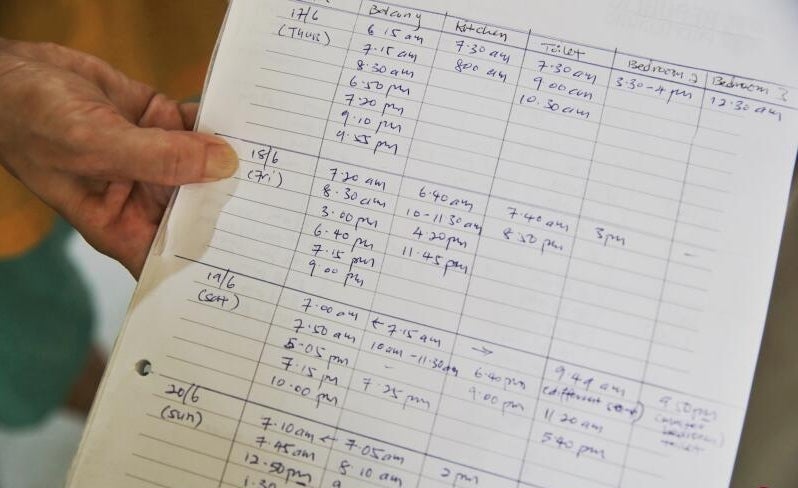 17/6 Balcony Kitchen Toilet Bedroom 2 Bedroom
(Thur) 6.15 am 7.30 am 7.30 am 3.30-4 pm 12.30 am
7.15 am 800 am 9 00 am
8.30 am 10.30 am
6.50 pm
7.20 pm
9.10 pm
9.55 pm
18/6 7.20 am 6.40 am 7.40 am 3 pm -
(Fri) 8.30 am 10-11.30 am 8.50 pm
3.00 pm 4.20 pm
6.40 pm 11.45 pm
7.15 pm
9 00 pm
19/6 7.00 am ← 7.15 am → 9.40 am 9 50 pm
(sat) 7.50 am 10 am - 11.30 am 6.40 pm (different
5.05 pm - 9.00 pm 11 20 am
7.15 pm 7.25 pm 5.40 pm
10.00 pm
20/6 7.10 am ← 7.05 am 2 pm
(sun) 7.45 am 8.10 am
12.50 pm 9
1.30